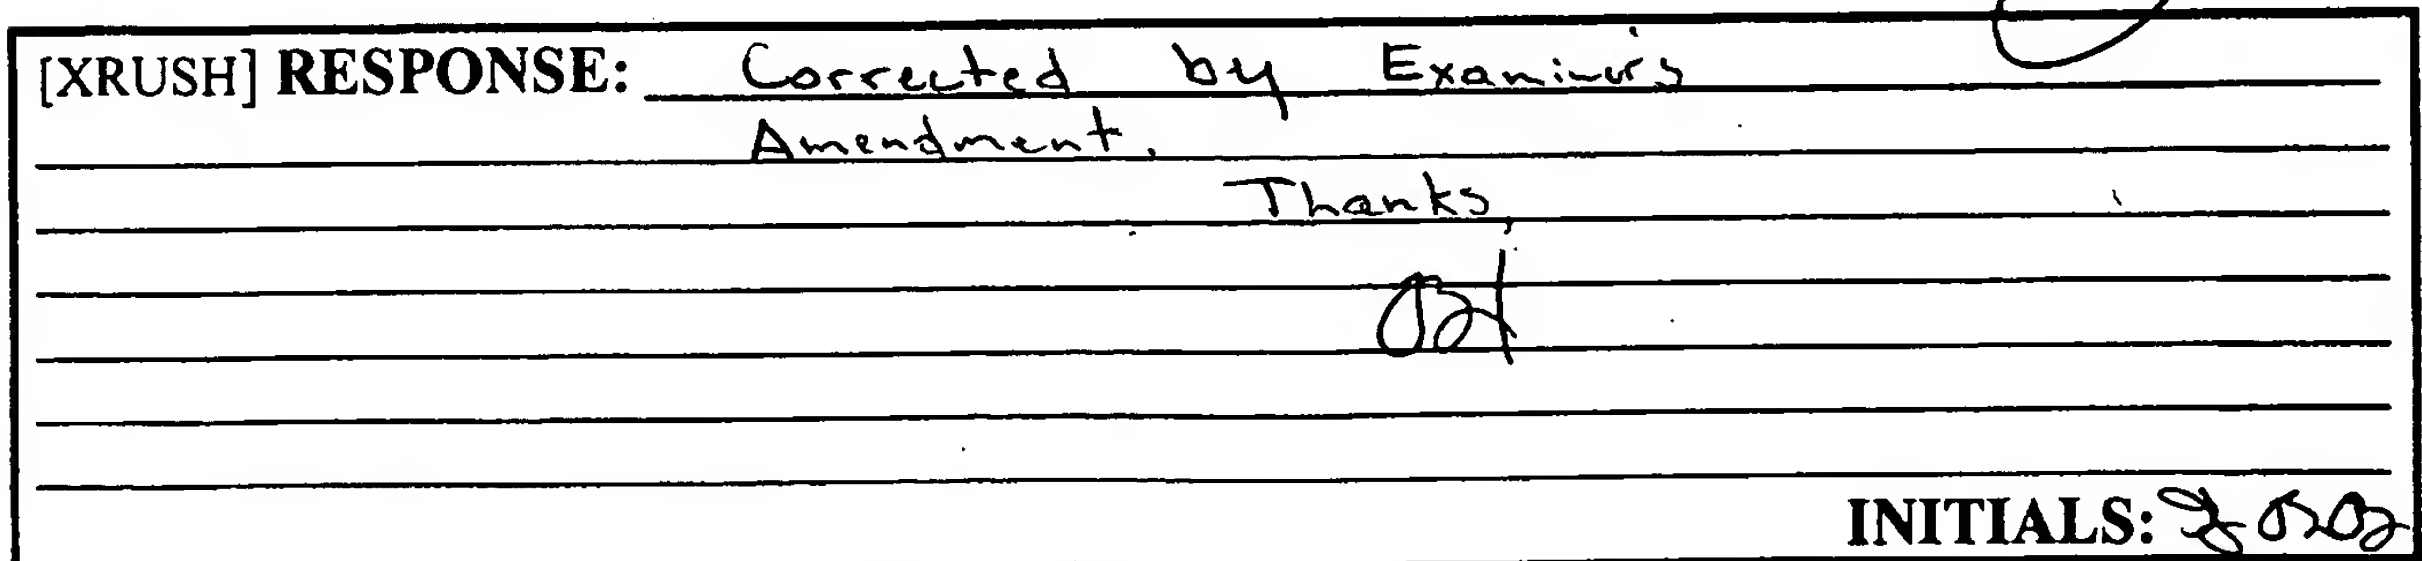 [XRUSH] RESPONSE: Corrected by Examiner's
Amendment.
Thanks,
INITIALS: